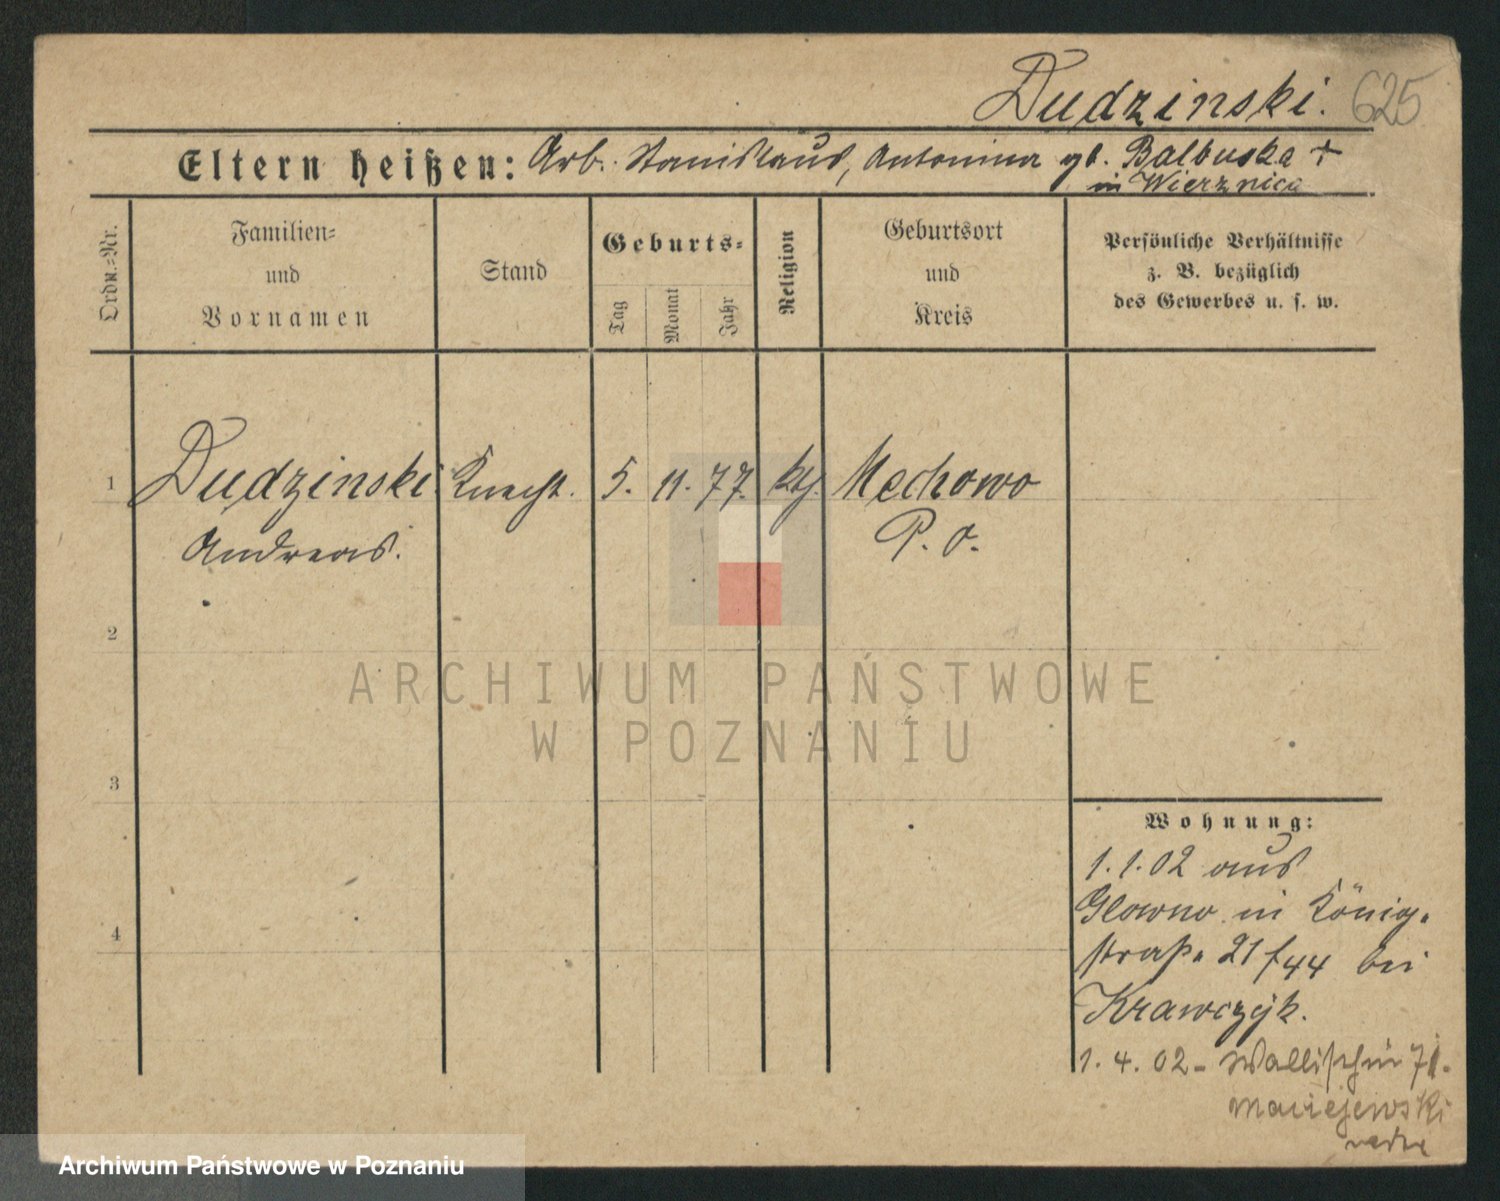 Dudzinski. 625
Eltern heißen: Arb. Stanislaus, Antonina gb. Balbuska +
in Wierznica
Ordn.-Nr.
Familien-
und
Vornamen
Stand
Geburts-
Tag
Monat
Jahr
Religion
Geburtsort
und
Kreis
Persönliche Verhältnisse
z. B. bezüglich
des Gewerbes u. s. w.
1 Dudzinski Knecht. 5. 11. 77. kth. Mechowo
Andreas. P. O.
2
3
4
Wohnung:
1.1.02 aus
Glowno in König-
straße 21/44 bei
Krawczÿk.
1. 4. 02 - Wallischei 71.
Maciejewski
ARCHIWUM PAŃSTWOWE
W POZNANIU
Archiwum Państwowe w Poznaniu